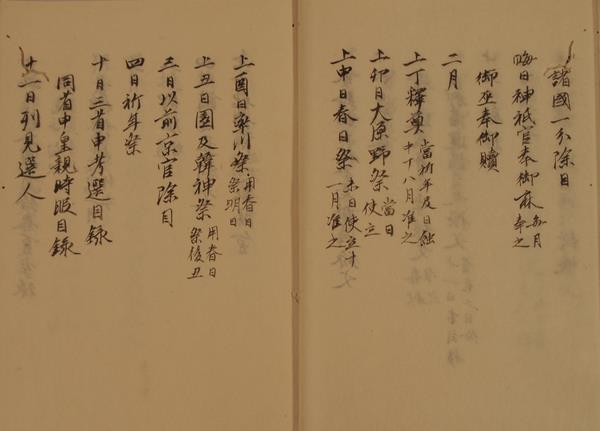 諸國一分除目
晦日神祇官奉御麻 毎月奉之
御巫奉御贖
二月
上丁釋奠 當祈年及日蝕中丁十八月准之
上卯日大原野祭 當日使立
上申日春日祭 未日使立十一月准之
上酉日率川祭 用春日祭明日
上丑日園及韓神祭 用春日祭後丑
三日以前京官除目
四日祈年祭
十日三省申考選目録
同省申皇親時服目録
十一日列見選人